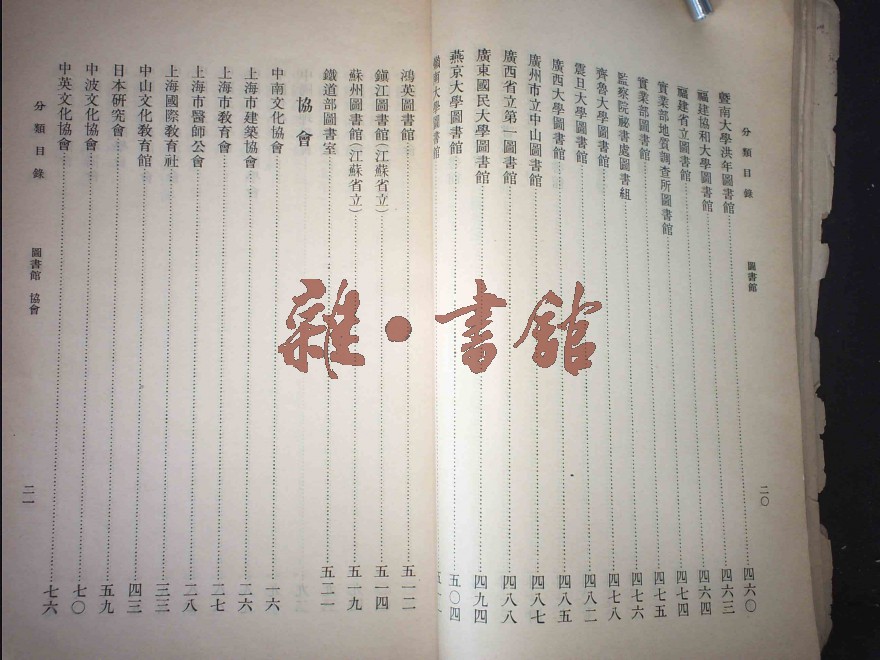 分類目錄 圖書館 二〇
暨南大學洪年圖書館……四六〇
福建協和大學圖書館……四六三
福建省立圖書館……四六四
實業部地質調查所圖書館……四七四
實業部圖書館……四七五
監察院祕書處圖書組……四七六
齊魯大學圖書館……四七八
震旦大學圖書館……四八二
廣西大學圖書館……四八五
廣州市立中山圖書館……四八七
廣西省立第一圖書館……四八八
廣東國民大學圖書館……四九四
燕京大學圖書館……五〇四
嶺南大學圖書館……
鴻英圖書館……五一二
鎭江圖書館(江蘇省立)……五一四
蘇州圖書館(江蘇省立)……五一九
鐵道部圖書室……五二一
協會
中南文化協會……一六
上海市建築協會……二六
上海市教育會……二七
上海市醫師公會……二八
上海國際教育社……三三
中山文化教育館……四三
日本研究會……五九
中波文化協會……七〇
中英文化協會……七六
分類目錄 圖書館 協會 二一
雜·書館